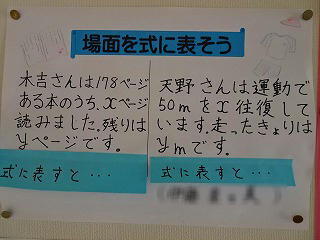 場面を式に表そう
木吉さんは178ページ
ある本のうち、xページ
読みました。残りは
yページです。
式に表すと・・・
天野さんは運動で
50mをx往復して
います。走ったきょりは
ymです。
式に表すと・・・